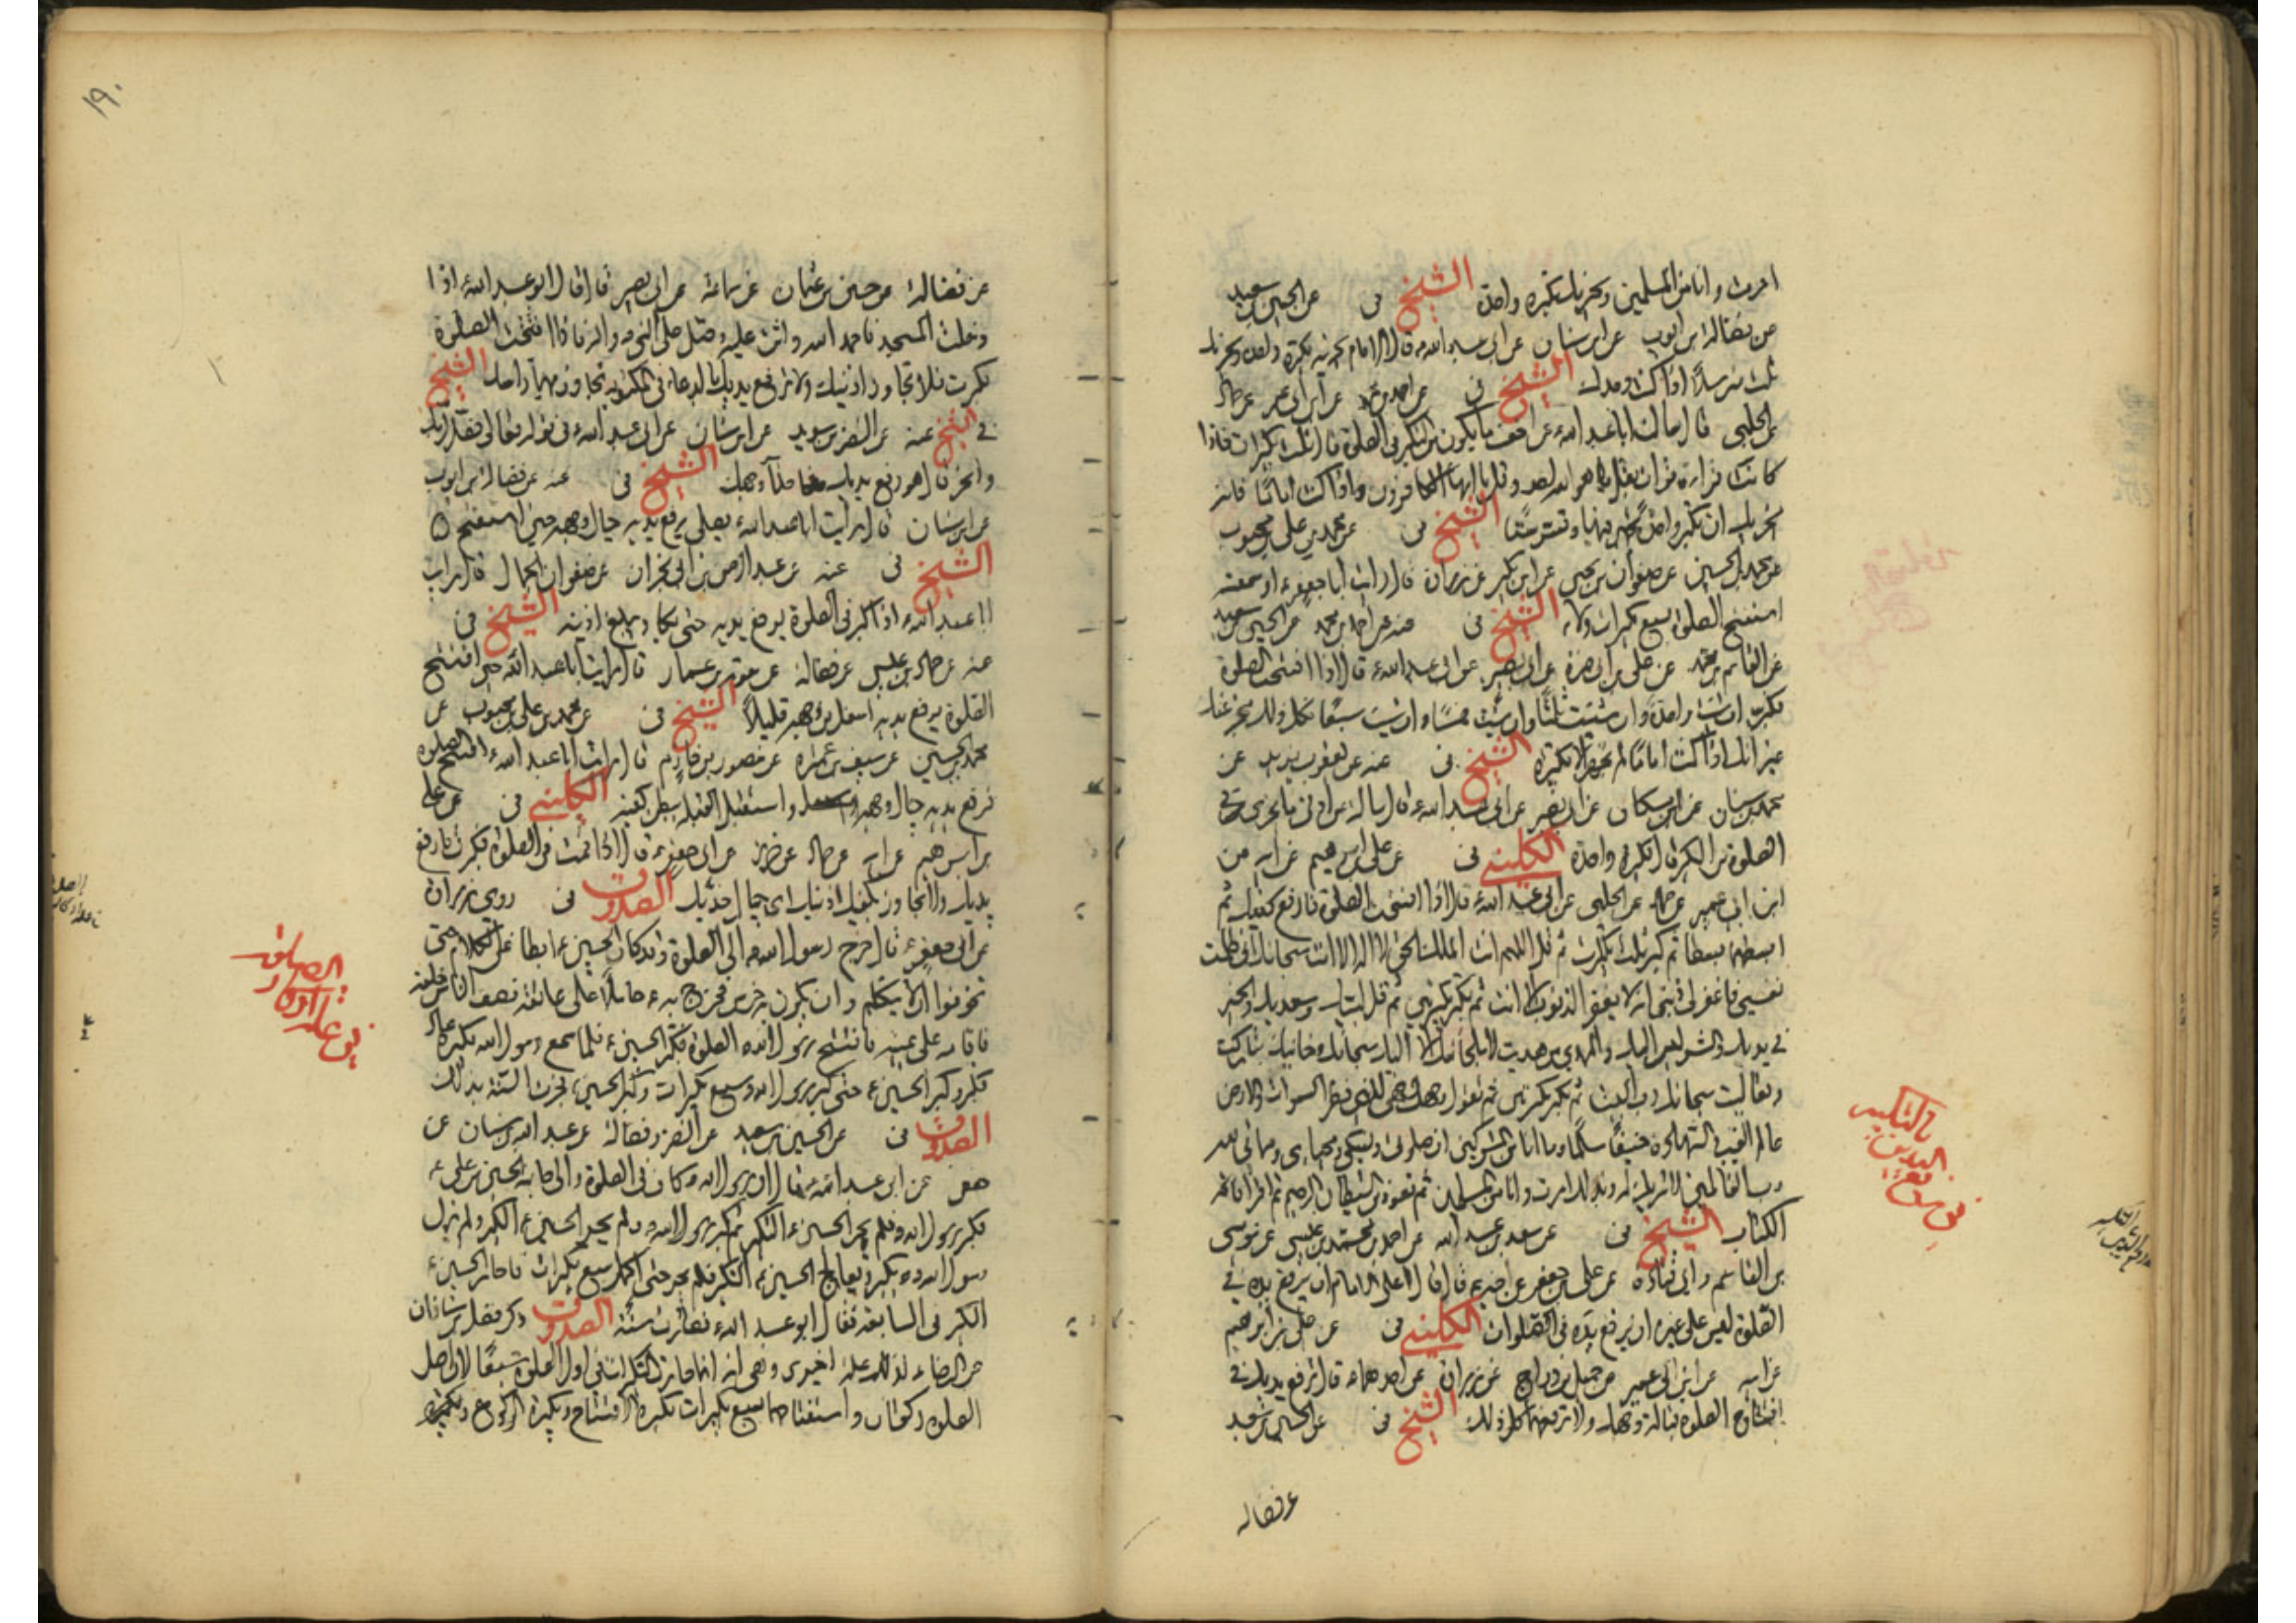 امرت وانا من المسلمين ويجزيك تكبيرة واحدة الشيخ فى عن الحسين بن سعيد
عن فضالة بن ايوب عن ابن سنان عن ابى عبد الله قال الامام يجزيه تكبيرة واحدة ويجزيك
ثلث مترسلا اذا كنت وحدك الشيخ فى عن احمد بن محمد عن ابن ابى عمير عن حماد
عن الحلبى قال سالت ابا عبد الله عن اخف ما يكون من التكبير فى الصلوة قال ثلث تكبيرات فاذا
كانت قراءة قرات بقل هو الله احد وقل يا ايها الكافرون واذا كنت اماما فانه
يجزيك ان تكبر واحدة تجهر فيها وتسر ستا الشيخ فى عن محمد بن على بن محبوب
عن محمد بن الحسين عن صفوان بن يحيى عن ابن بكير عن زرارة قال رايت ابا جعفر او سمعته
استفتح الصلوة بسبع تكبيرات ولاء الشيخ فى عنه عن احمد بن محمد عن الحسين بن سعيد
عن القاسم بن محمد عن على بن ابى حمزة عن ابى بصير عن ابى عبد الله قال اذا افتتحت الصلوة
فكبر ان شئت واحدة وان شئت ثلثا وان شئت خمسا وان شئت سبعا فكل ذلك مجز عنك
غير انك اذا كنت اماما لم تجهر الا بتكبيرة الشيخ فى عنه عن يعقوب بن يزيد عن
محمد بن سنان عن ابن مسكان عن ابى بصير عن ابى عبد الله قال سالته عن ادنى ما يجزى فى
الصلوة من التكبير قال تكبيرة واحدة الكلينى فى عن على بن ابرهيم عن ابيه عن
ابن ابى عمير عن حماد عن الحلبى عن ابى عبد الله قال اذا افتتحت الصلوة فارفع كفيك ثم
ابسطهما بسطا ثم كبر ثلث تكبيرات ثم قل اللهم انت الملك الحق لا اله الا انت سبحانك انى ظلمت
نفسى فاغفر لى ذنبى انه لا يغفر الذنوب الا انت ثم تكبر تكبيرتين ثم قل لبيك وسعديك والخير
فى يديك والشر ليس اليك والمهدى من هديت لا ملجأ منك الا اليك سبحانك وحنانيك تباركت
وتعاليت سبحانك رب البيت ثم تكبر تكبيرتين ثم تقول وجهت وجهى للذى فطر السموات والارض
عالم الغيب والشهادة حنيفا مسلما وما انا من المشركين ان صلوتى ونسكى ومحياى ومماتى لله
رب العالمين لا شريك له وبذلك امرت وانا من المسلمين ثم تعوذ من الشيطان الرجيم ثم اقرأ فاتحة
الكتاب الشيخ فى عن سعد بن عبد الله عن احمد بن محمد بن عيسى عن موسى
بن القاسم وابى قتادة عن على بن جعفر عن اخيه قال قال على الامام ان يرفع يده فى
الصلوة ليس على غيره ان يرفع يده فى الصلوات الكلينى فى عن على بن ابرهيم
عن ابيه عن ابن ابى عمير عن جميل بن دراج عن زرارة عن احدهما قال ترفع يديك فى
افتتاح الصلوة قبالة وجهك ولا ترفعهما كل ذلك الشيخ فى عن الحسين بن سعيد
عن فضاله
١٩٠
عن فضالة عن حسين بن عثمان عن سماعة عن ابى بصير قال قال ابو عبد الله اذا
دخلت المسجد فاحمد الله واثن عليه وصل على النبى واله فاذا افتتحت الصلوة
فكبرت فلا تجاوز اذنيك ولا ترفع يديك بالدعاء فى المكتوبة تجاوز بهما راسك الشيخ
فى الشيخ عنه عن النضر بن سويد عن ابن سنان عن ابى عبد الله فى قوله تعالى فصل لربك
وانحر قال هو رفع يديك حذاء وجهك الشيخ فى عنه عن فضالة بن ايوب
عن ابن سنان قال رايت ابا عبد الله يصلى يرفع يديه حيال وجهه حين استفتح
الشيخ فى عنه عن عبد الرحمن بن ابى نجران عن صفوان الجمال قال رايت
ابا عبد الله اذا كبر فى الصلوة يرفع يديه حتى يكاد يبلغ اذنيه الشيخ فى
عنه عن حماد بن عيسى عن فضالة عن معوية بن عمار قال رايت ابا عبد الله حين افتتح
الصلوة يرفع يديه اسفل من وجهه قليلا الشيخ فى عن محمد بن على بن محبوب عن
محمد بن الحسين عن سيف بن عميرة عن منصور بن حازم قال رايت ابا عبد الله افتتح الصلوة
فرفع يديه حيال وجهه واستقبل القبلة ببطن كفيه الكلينى فى عن على
بن ابرهيم عن ابيه عن حماد عن حريز عن ابى جعفر قال اذا قمت فى الصلوة فكبرت فارفع
يديك ولا تجاوز بكفيك اذنيك اى حيال خديك الصدوق فى روى زرارة
عن ابى جعفر قال خرج رسول الله الى الصلوة وقد كان الحسين ابطا عن الكلام حتى
تخوفوا ان لا يتكلم وان يكون به خرس فخرج به حاملا على عاتقه وصف الناس خلفه
فاقامه على يمينه فافتتح رسول الله الصلوة فكبر الحسين فلما سمع رسول الله تكبيره عاد
فكبر وكبر الحسين حتى كبر رسول الله سبع تكبيرات وكبر الحسين فجرت السنة بذلك
الصدوق فى عن الحسين بن سعيد عن النضر وفضالة عن عبد الله بن سنان عن
حفص عن ابى عبد الله قال ان رسول الله كان فى الصلوة والى جانبه الحسين بن على
فكبر رسول الله فلم يحر الحسين التكبير ثم كبر رسول الله فلم يحر الحسين التكبير ولم يزل
رسول الله يكبر ويعالج الحسين التكبير فلم يحر حتى اكمل سبع تكبيرات فاحار الحسين
التكبير فى السابعة فقال ابو عبد الله فصارت سنة الصدوق ذكر فضل بن شاذان
عن الرضا لذلك علة اخرى وهى انه انما صارت التكبيرات فى اول الصلوة سبعا لان اصل
الصلوة ركعتان واستفتاحهما سبع تكبيرات تكبيرة الافتتاح وتكبيرة الركوع وتكبيرتى